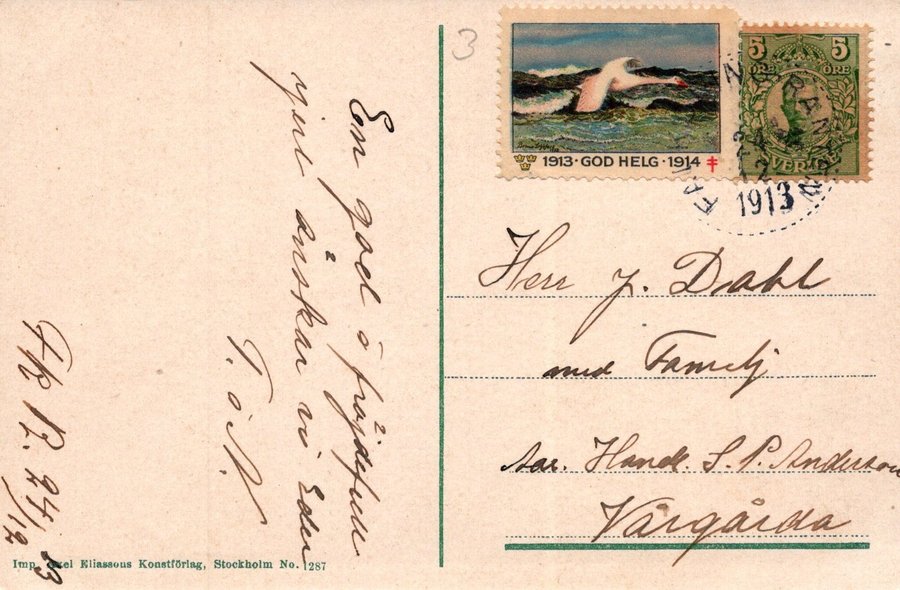 3
1913 · GOD HELG · 1914
5 5
ÖRE ÖRE
SVERIGE
1913
En god o fröjdefull
jul önskar vi Eder
Herr J. Dahl
med Familj
Adr. Handl. S. P. Anderson
Vårgårda
24/12 13
Imp. Axel Eliassons Konstförlag, Stockholm No. 1287